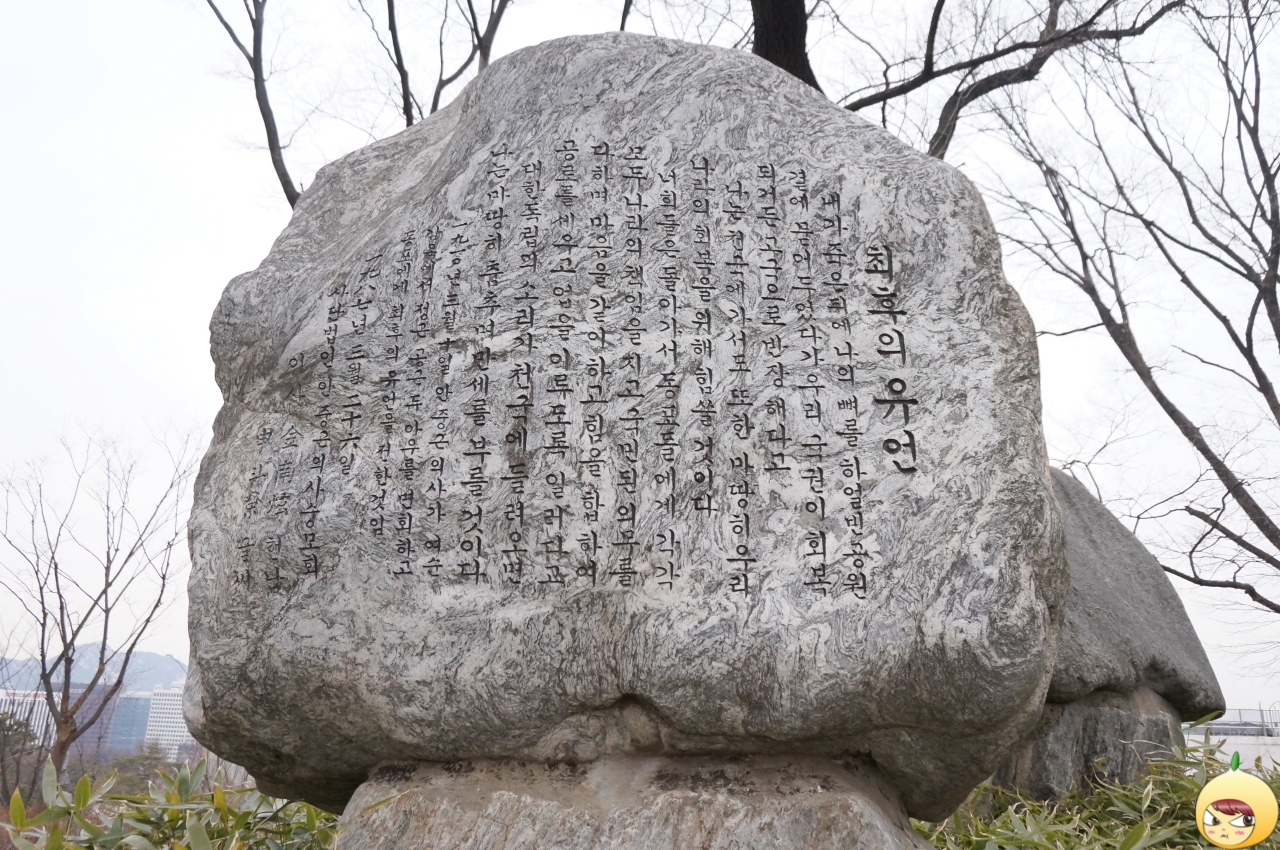 최후의 유언
내가 죽은뒤에 나의 뼈를 하얼빈공원
곁에 묻어두었다가 우리 국권이 회복
되거든 고국으로 반장해다고
나는 천국에 가서도 또한 마땅히 우리
나라의 회복을 위해 힘쓸 것이다
너희들은 돌아가서 동포들에게 각각
모두 나라의 책임을 지고 국민된 의무를
다하며 마음을 같이하고 힘을 합하여
공로를 세우고 업을 이루도록 일러다고
대한독립의 소리가 천국에 들려오면
나는 마땅히 춤추며 만세를 부를 것이다
一九一0년 三월 十일 안중근 의사가 여순
감옥에서 정근 공근 두 아우를 면회하고
동포에게 최후의 유언을 전한것임
년 三월 二十六일
사단법인 안중근의사숭모회
글씨